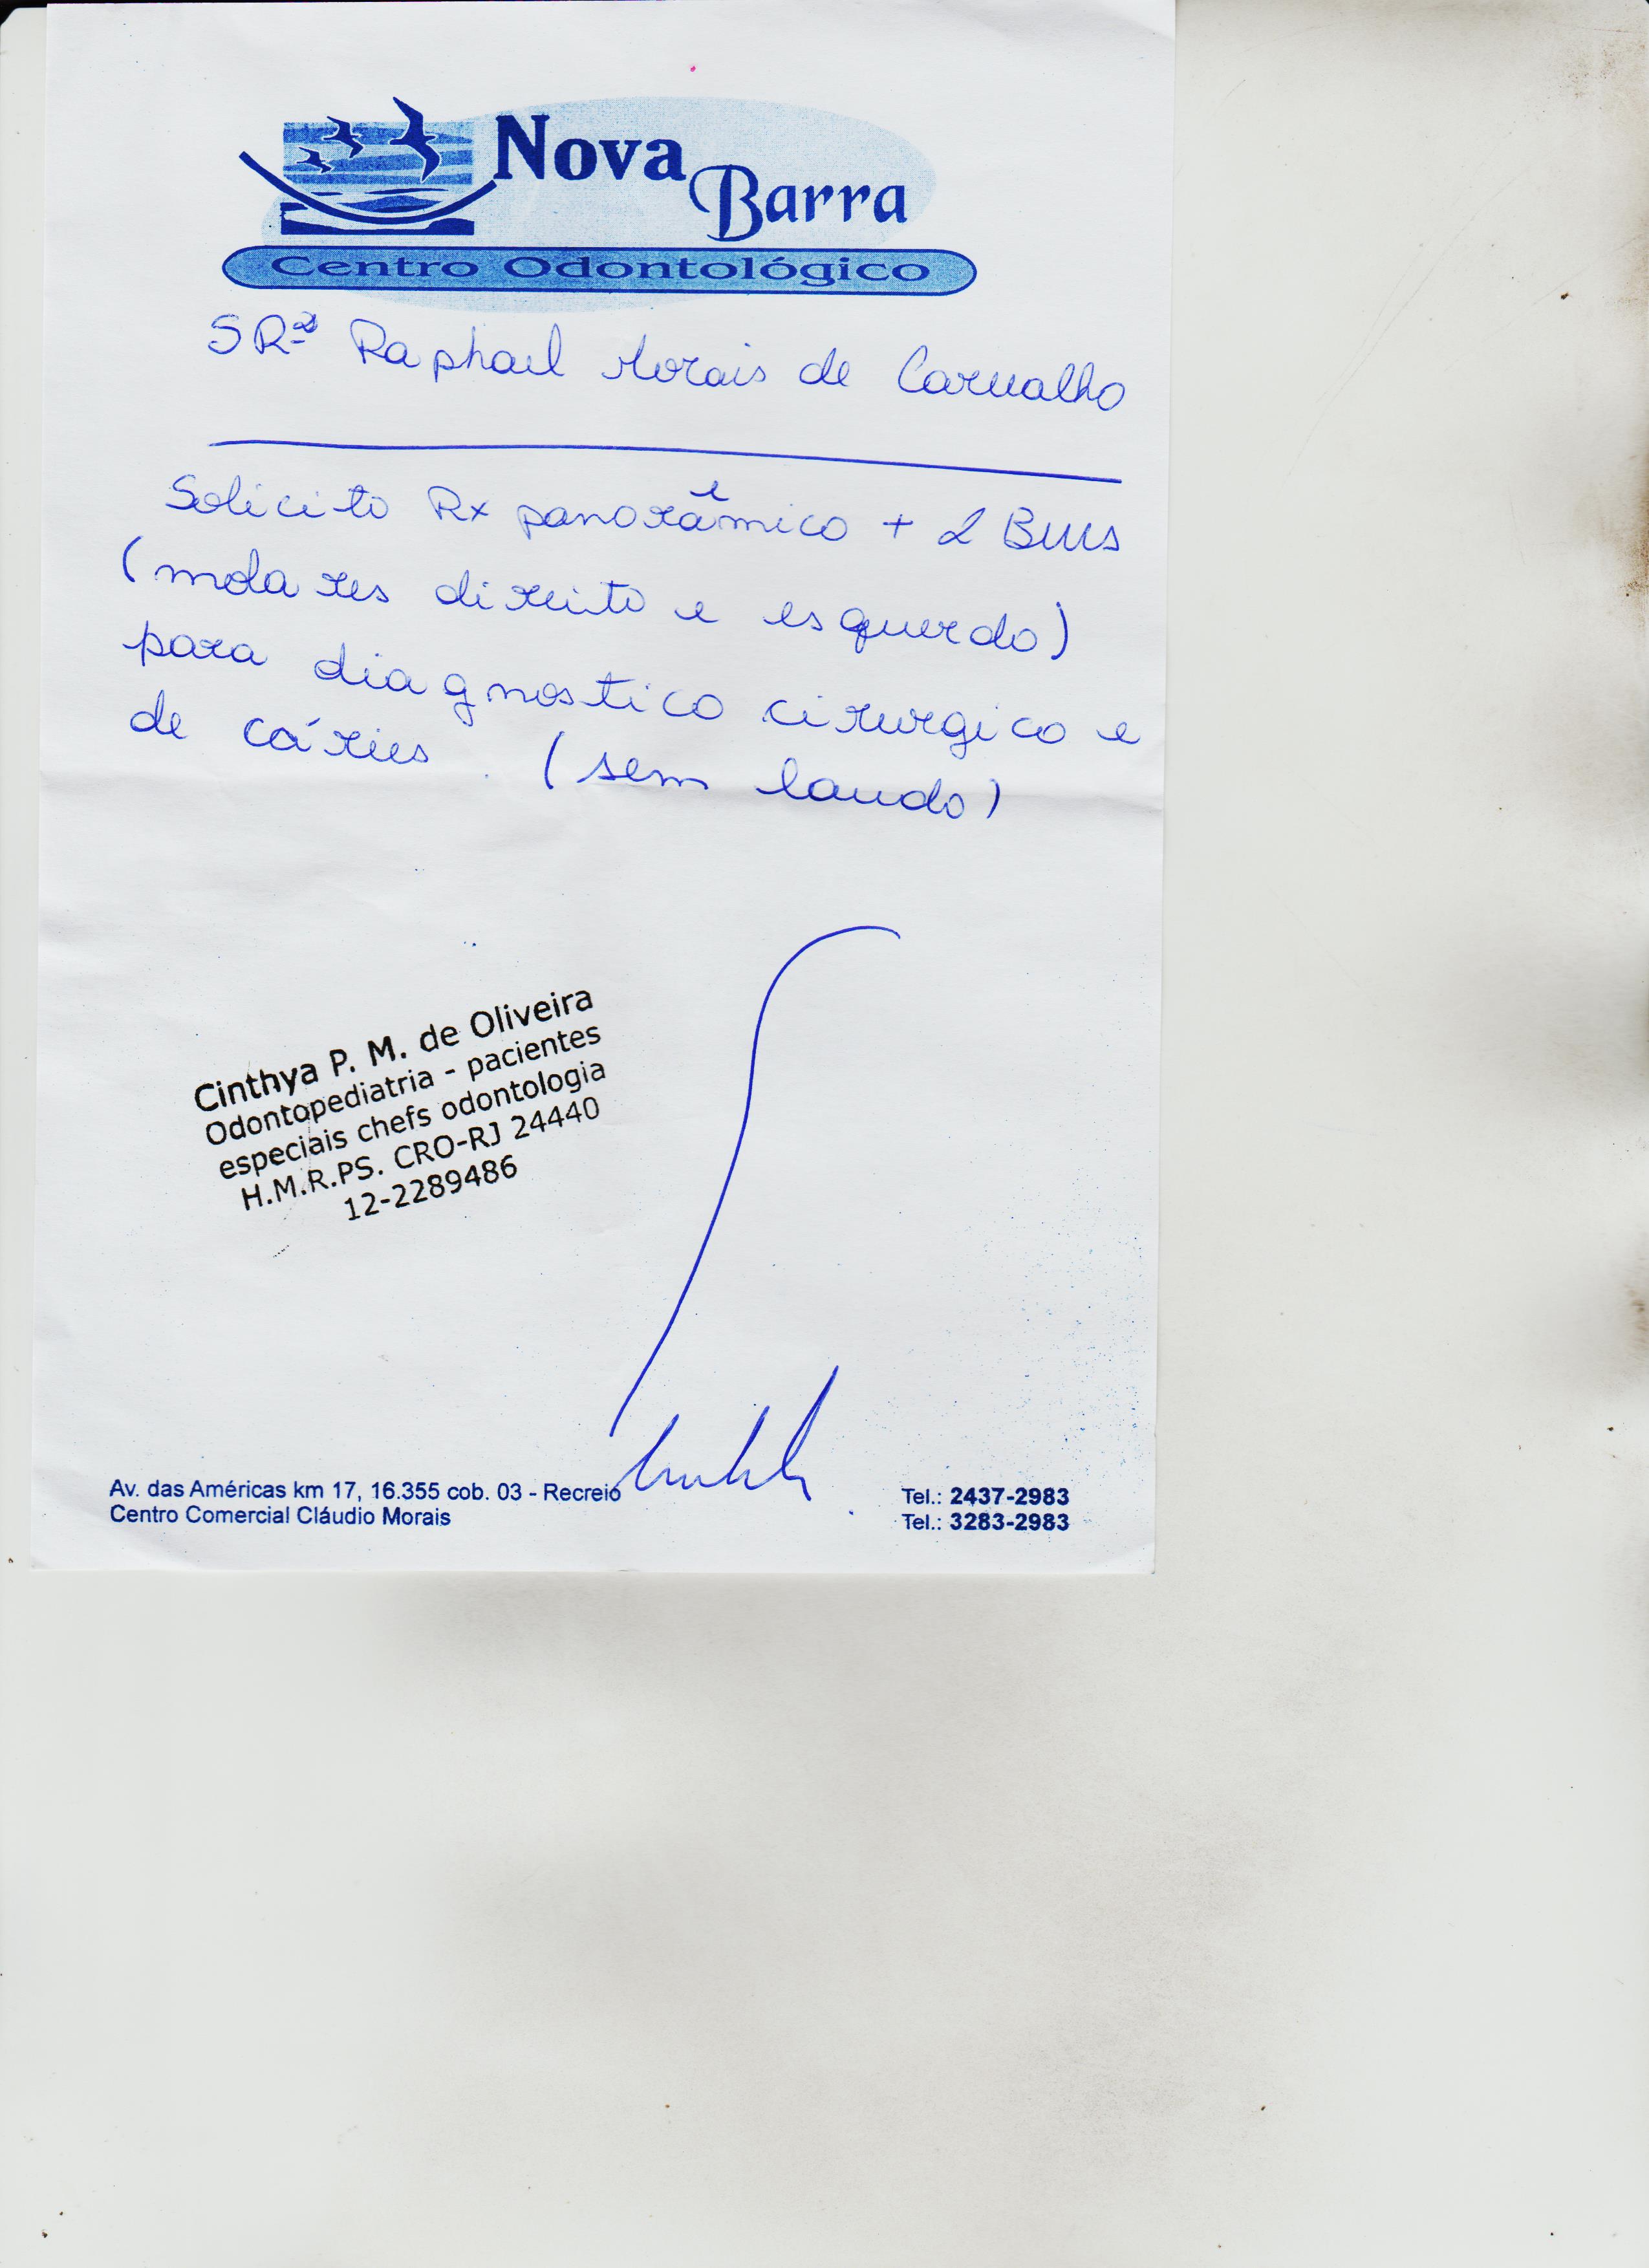 Nova
Barra
Centro Odontológico
SRª Raphael Morais de Carvalho
Solicito Rx panorâmico + 2 BWs
(molares direito e esquerdo)
para diagnostico cirurgico e
de cáries. (sem laudo)
Cinthya P. M. de Oliveira
Odontopediatria - pacientes
especiais chefs odontologia
H.M.R.PS. CRO-RJ 24440
12-2289486
Av. das Américas km 17, 16.355 cob. 03 - Recreio
Centro Comercial Cláudio Morais
Tel.: 2437-2983
Tel.: 3283-2983